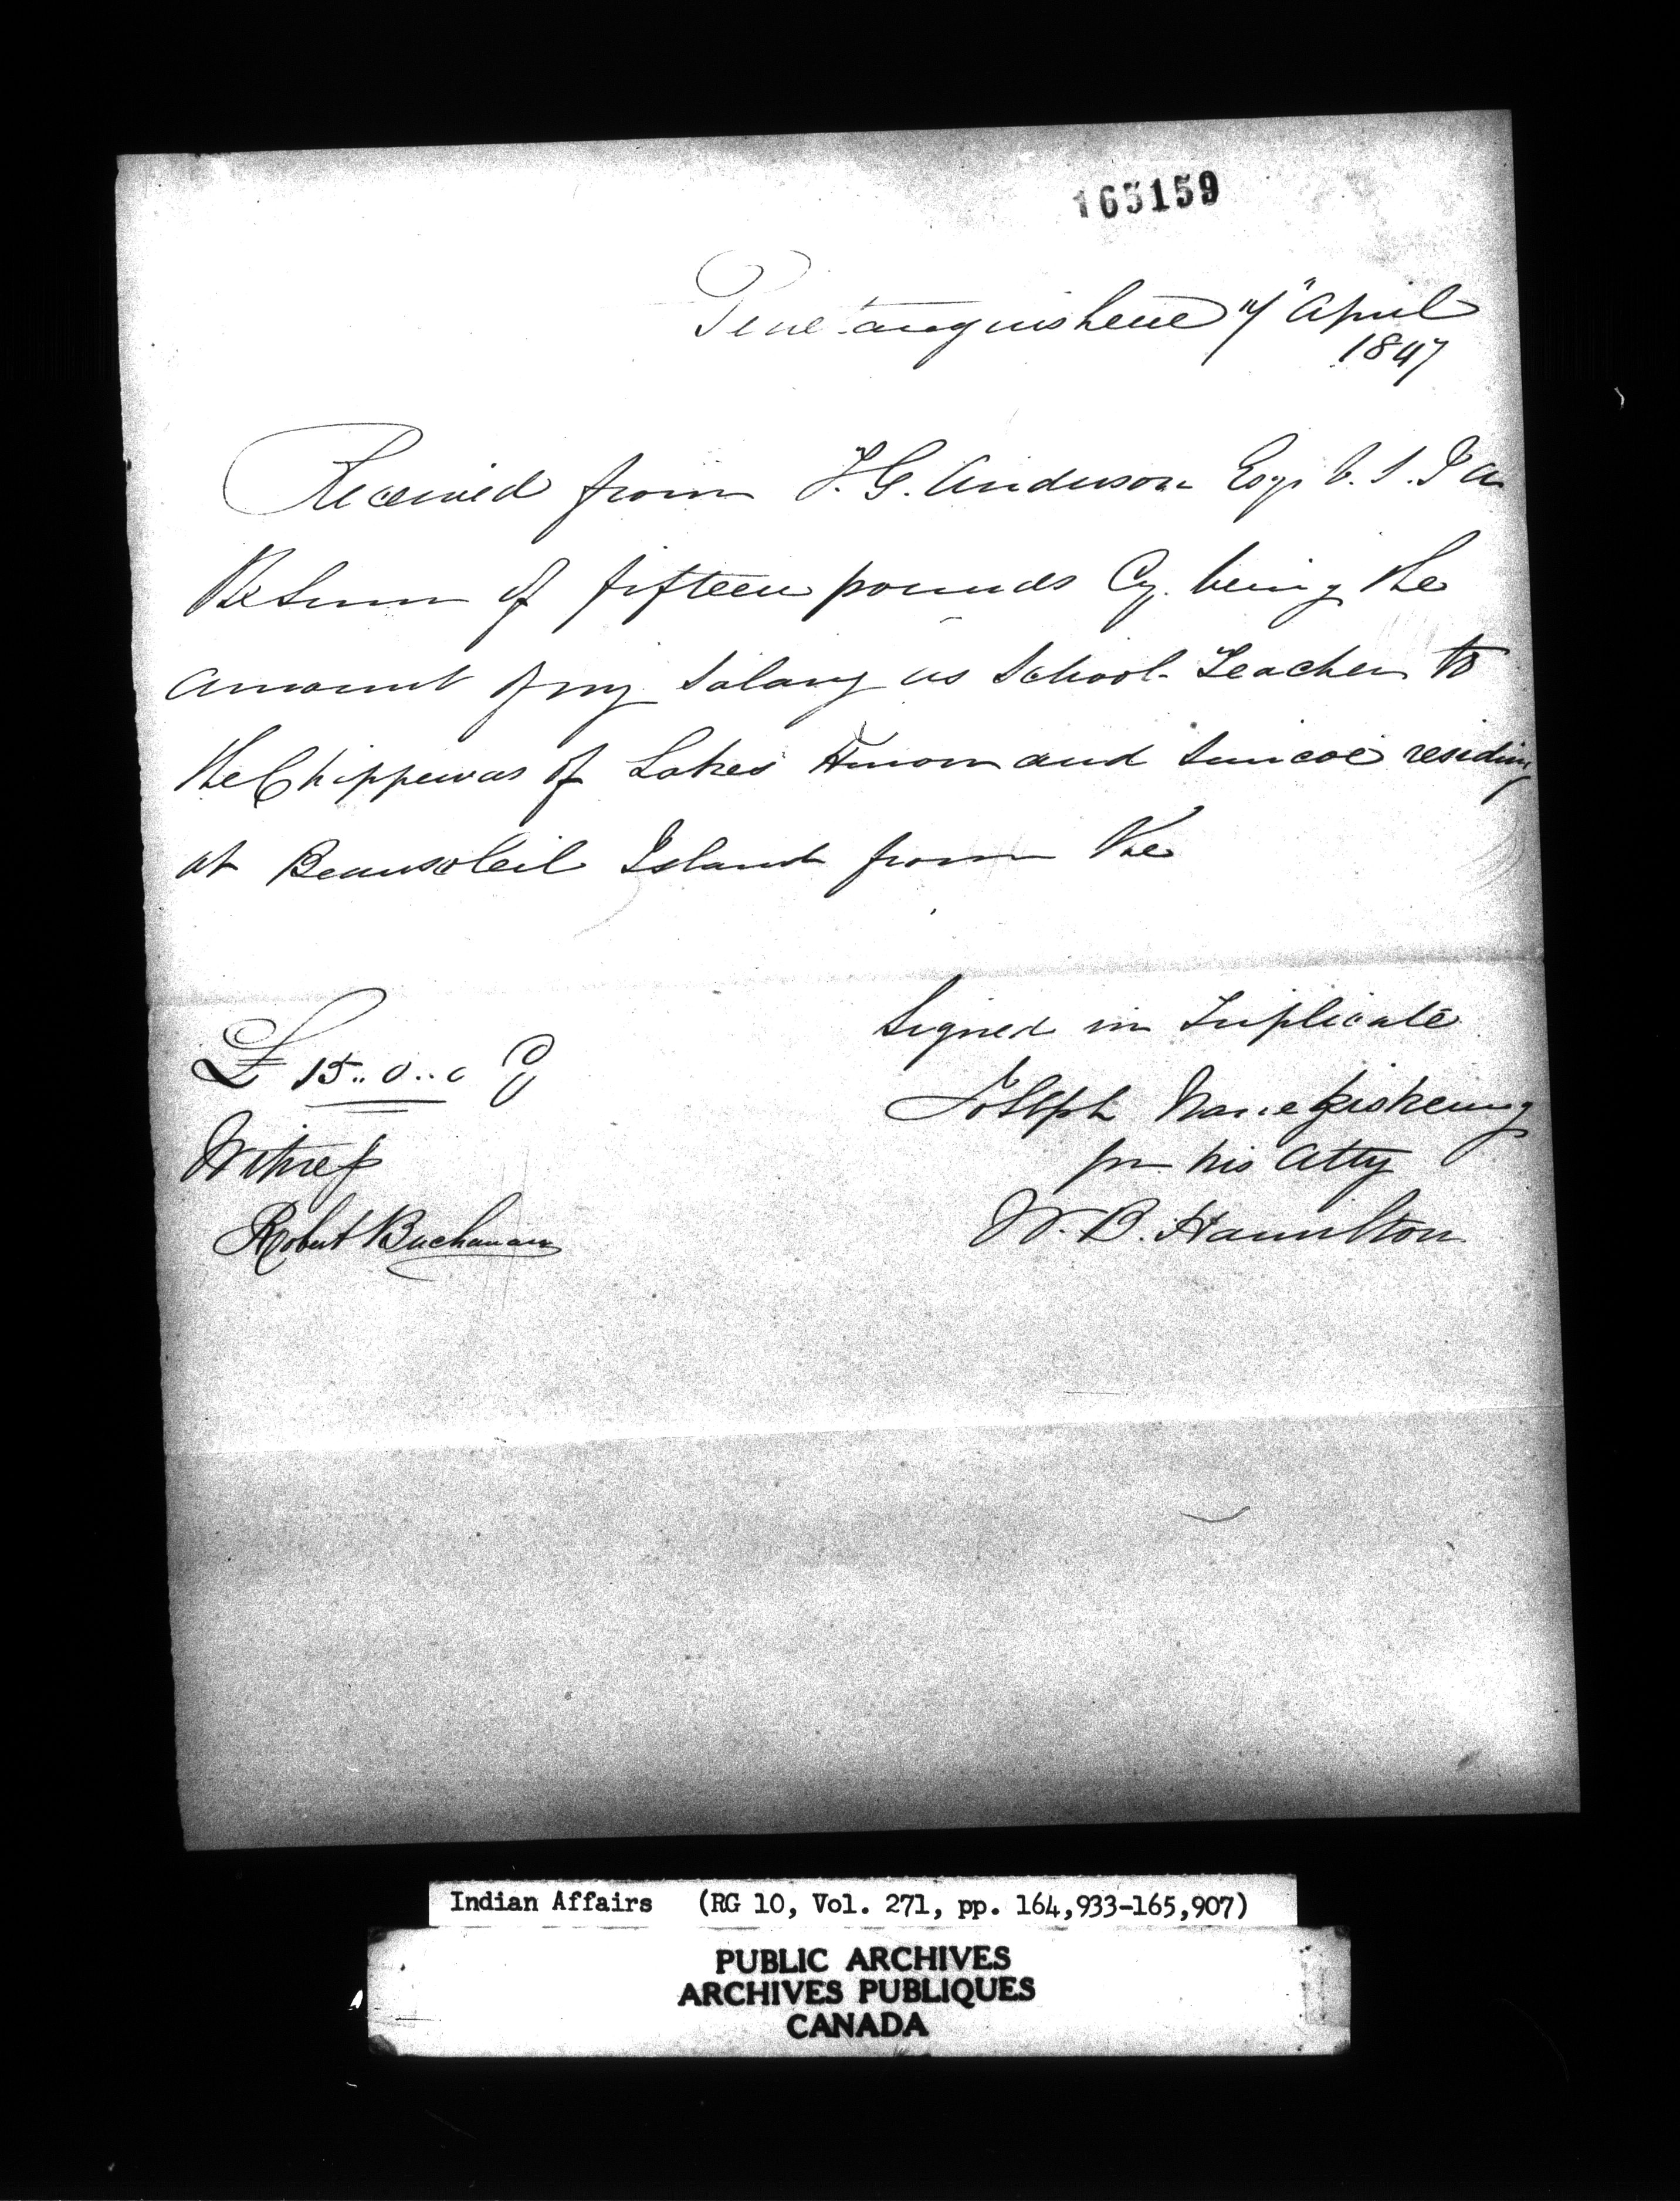 165159
Penetanguishene 7" April
1847
Received from T. G. Anderson Esqr V. S. I a
the Sum of fifteen pounds Cy. being the
amount of my Salary as School Teacher to
the Chippewas of Lakes Huron and Simcoe residing
at Beausoleil Island from the
Signed in Triplicate
£ 15.. 0.. 0 Cy
Joseph
Witness
pr his Atty
Robert Buchanan
W. B. Hamilton
Indian Affairs (RG 10, Vol. 271, pp. 164,933-165,907)
PUBLIC ARCHIVES
ARCHIVES PUBLIQUES
CANADA